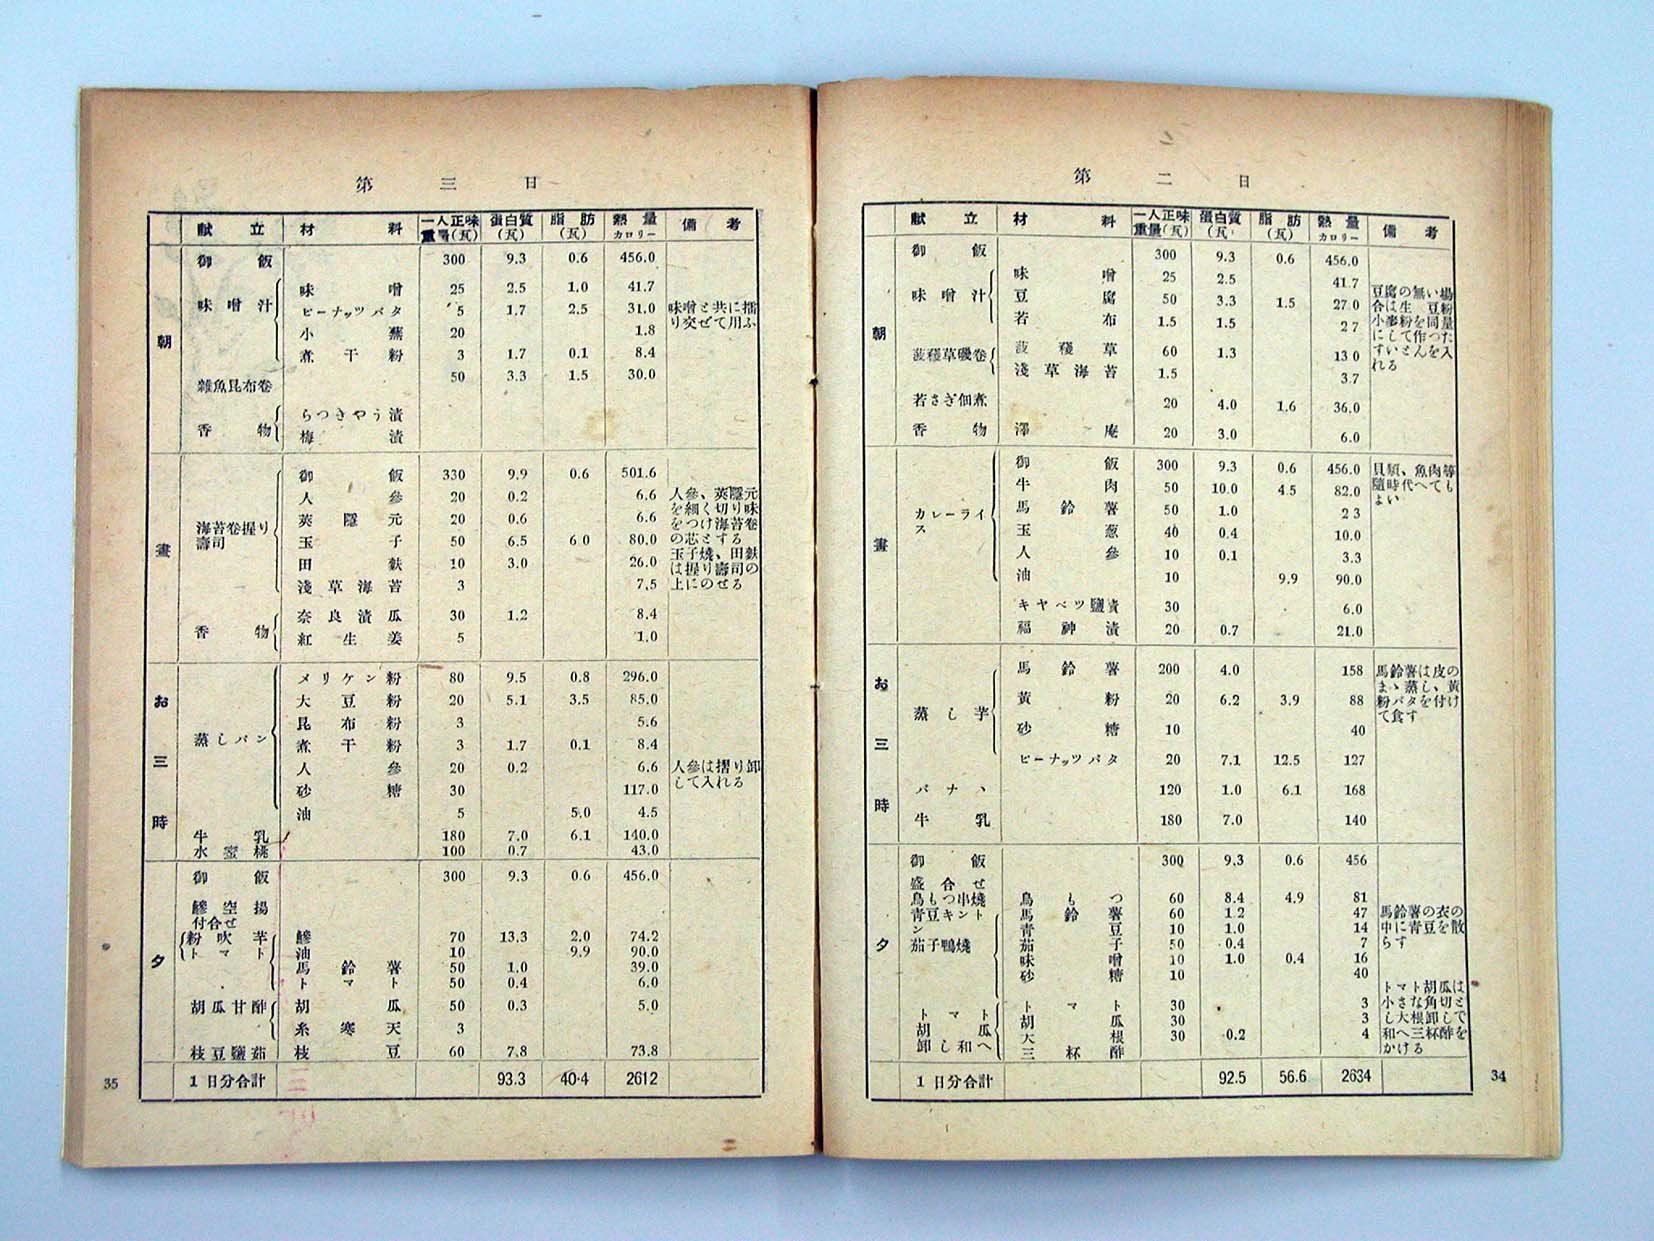 第二日
献立 材料 一人正味重量(瓦) 蛋白質(瓦) 脂肪(瓦) 熱量カロリー 備考
朝
御飯 300 9.3 0.6 456.0
味噌汁 味噌 25 2.5 41.7
豆腐 50 3.3 1.5 27.0
若布 1.5 1.5 2 7
豆腐の無い場
合は生豆粉
小麥粉を同量
にして作つた
すいとんを入
れる
菠薐草磯卷 菠薐草 60 1.3 13 0
淺草海苔 1.5 3.7
若さぎ佃煮 20 4.0 1.6 36.0
香物 澤庵 20 3.0 6.0
晝
カレーライス 御飯 300 9.3 0.6 456.0
牛肉 50 10.0 4.5 82.0
馬鈴薯 50 1.0 2 3
玉葱 40 0.4 10.0
人參 10 0.1 3.3
油 10 9.9 90.0
キヤベツ鹽漬 30 6.0
福神漬 20 0.7 21.0
貝類、魚肉等
隨時代へても
よい
お三時
蒸し芋 馬鈴薯 200 4.0 158
黃粉 20 6.2 3.9 88
砂糖 10 40
ピーナッツバタ 20 7.1 12.5 127
馬鈴薯は皮の
まゝ蒸し、黃
粉バタを付け
て食す
バナヽ 120 1.0 6.1 168
牛乳 180 7.0 140
夕
御飯 300 9.3 0.6 456
盛合せ
鳥もつ串燒 鳥もつ 60 8.4 4.9 81
青豆キントン 馬鈴薯 60 1.2 47
青豆 10 1.0 14
茄子鴨燒 茄子 50 0.4 7
味噌 10 1.0 0.4 16
砂糖 10 40
馬鈴薯の衣の
中に青豆を散
らす
トマト胡瓜卸し和へ トマト 30 3
胡瓜 30 3
大根 30 0.2 4
三杯酢
トマト胡瓜は
小さな角切と
し大根卸しで
和へ三杯酢を
かける
1日分合計 92.5 56.6 2634
34
第三日
献立 材料 一人正味重量(瓦) 蛋白質(瓦) 脂肪(瓦) 熱量カロリー 備考
朝
御飯 300 9.3 0.6 456.0
味噌汁 味噌 25 2.5 1.0 41.7
ピーナッツバタ 5 1.7 2.5 31.0
小蕪 20 1.8
煮干粉 3 1.7 0.1 8.4
味噌と共に擂
り交ぜて用ふ
雜魚昆布卷 50 3.3 1.5 30.0
香物 らつきやう漬
梅漬
晝
海苔卷握り壽司 御飯 330 9.9 0.6 501.6
人參 20 0.2 6.6
莢隱元 20 0.6 6.6
玉子 50 6.5 6 0 80.0
田麩 10 3.0 26.0
淺草海苔 3 7.5
人參、莢隱元
を細く切り味
をつけ海苔卷
の芯とする
玉子燒、田麩
は握り壽司の
上にのせる
香物 奈良漬瓜 30 1.2 8.4
紅生姜 5 1.0
お三時
蒸しパン メリケン粉 80 9.5 0.8 296.0
大豆粉 20 5.1 3.5 85.0
昆布粉 3 5.6
煮干粉 3 1.7 0.1 8.4
人參 20 0.2 6.6
砂糖 30 117.0
油 5 5.0 4.5
人參は摺り卸
して入れる
牛乳 180 7.0 6.1 140.0
水蜜桃 100 0.7 43.0
夕
御飯 300 9.3 0.6 456.0
鰺空揚
付合せ
粉吹芋
トマト
鰺 70 13.3 2.0 74.2
油 10 9.9 90.0
馬鈴薯 50 1.0 39.0
トマト 50 0.4 6.0
胡瓜甘酢 胡瓜 50 0.3 5.0
糸寒天 3
枝豆鹽茹 枝豆 60 7.8 73.8
1日分合計 93.3 40.4 2612
35